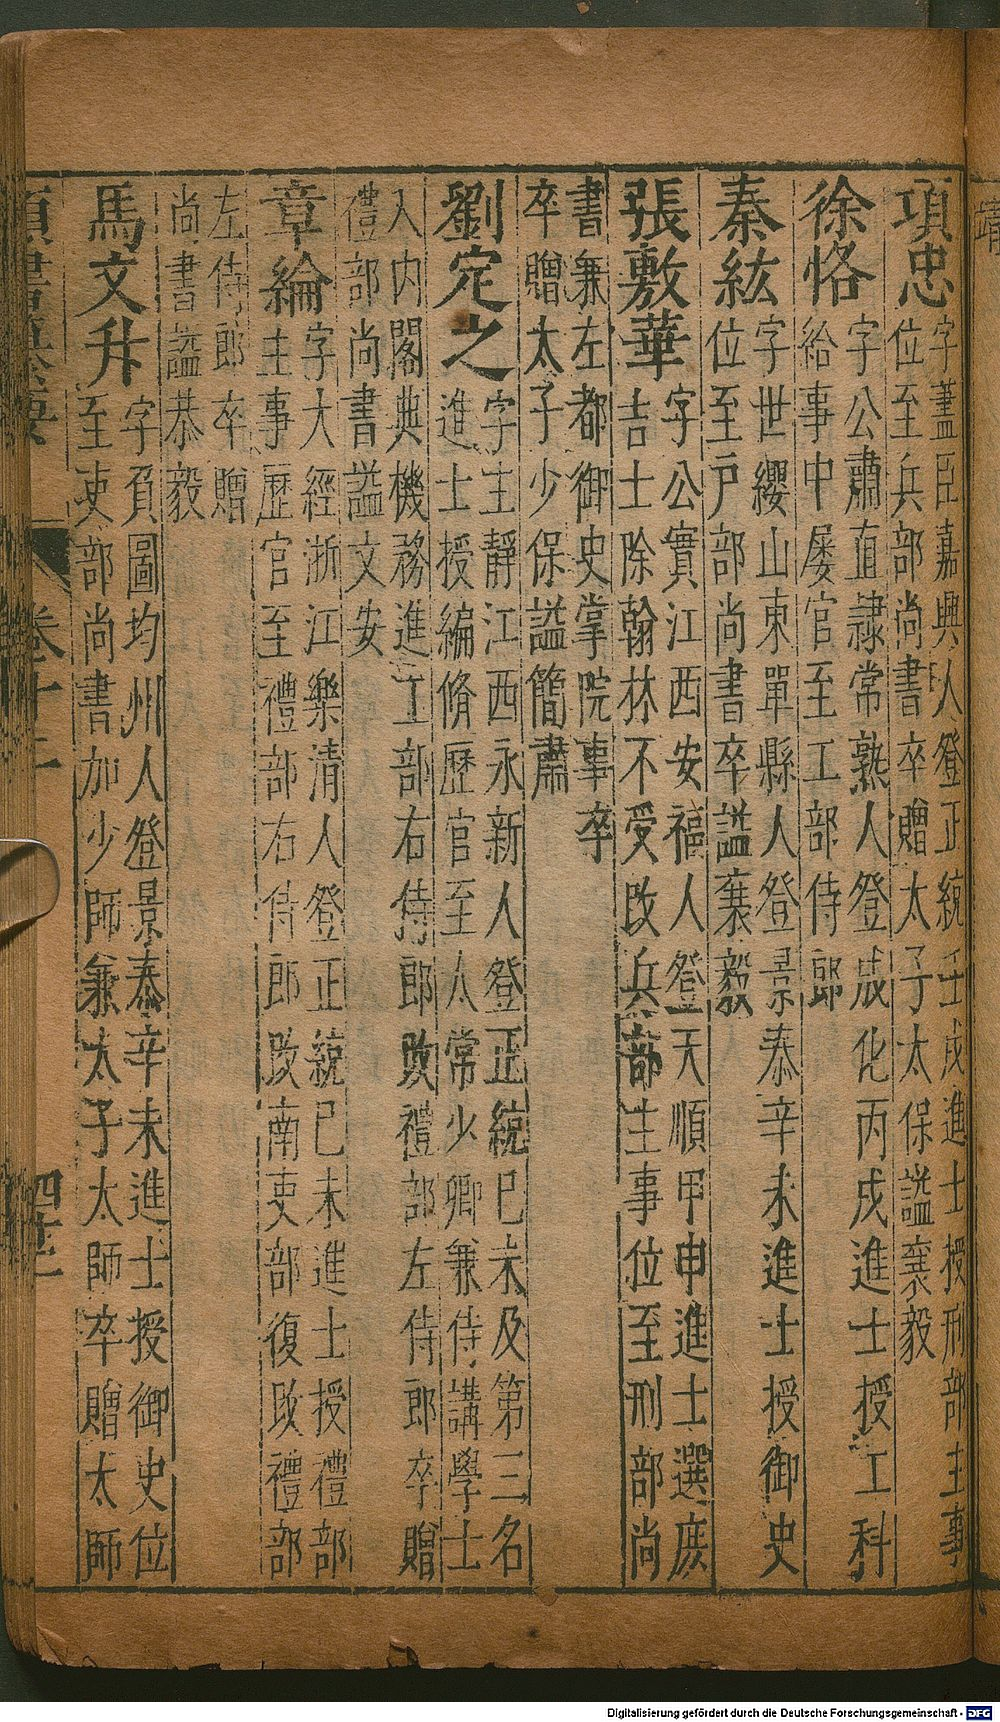 項忠字藎臣嘉興人登正統壬戌進士授刑部主事
位至兵部尚書卒贈太子太保謚襄毅
徐恪字公肅直隷常熟人登成化丙戌進士授工科
給事中屡官至工部侍郎
秦紘字世纓山東單縣人登景泰辛未進士授御史
位至戸部尚書卒謚襄毅
張敷華字公實江西安福人登天順甲申進士選庶
吉士除翰林不受改兵部主事位至刑部尚
書兼左都御史掌院事卒
卒贈太子少保謚簡肅
劉定之字主靜江西永新人登正統巳未及第三名
進士授編脩歷官至太常少卿兼侍講學士
入内閣典機務進工部右侍郎改禮部左侍郎卒贈
禮部尚書謚文安
章綸字大經浙江樂清人登正統巳未進士授禮部
主事歷官至禮部右侍郎改南吏部復改禮部
左侍郎卒贈
尚書謚恭毅
馬文升字負圖均州人登景泰辛未進士授御史位
至吏部尚書加少師兼太子太師卒贈太師
卷十二
Digitalisierung gefördert durch die Deutsche Forschungsgemeinschaft - DFG